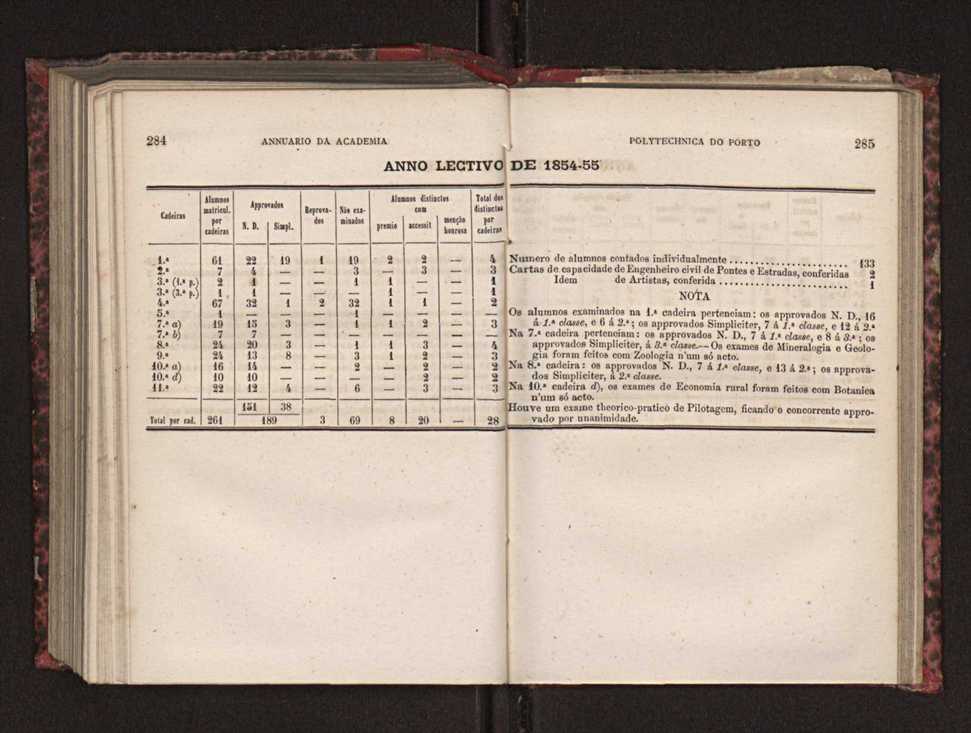 284 ANNUARIO DA ACADEMIA
ANNO LECTIVO DE 1854-55
Cadeiras | Alumnos matricul. por cadeiras | Approvados N. D. | Simpl. | Reprova-dos | Não exa-minados | Alumnos distinctos com premio | accessit | menção honrosa | Total dos distinctos por cadeiras
1.ª 61 22 19 1 19 2 2 — 4
2.ª 7 4 — — 3 — 3 — 3
3.ª (1.ª p.) 2 1 — — 1 1 — — 1
3.ª (3.ª p.) 1 1 — — — 1 — — 1
4.ª 67 32 1 2 32 1 1 — 2
5.ª 1 — — — 1 — — — —
7.ª a) 19 15 3 — 1 1 2 — 3
7.ª b) 7 7 — — — — — — —
8.ª 24 20 3 — 1 1 3 — 4
9.ª 24 13 8 — 3 1 2 — 3
10.ª a) 16 14 — — 2 — 2 — 2
10.ª d) 10 10 — — — — 2 — 2
11.ª 22 12 4 — 6 — 3 — 3
151 38
Total por cad. 261 189 3 69 8 20 — 28
POLYTECHNICA DO PORTO 285
Numero de alumnos contados individualmente ...................... 133
Cartas de capacidade de Engenheiro civil de Pontes e Estradas, conferidas 2
Idem de Artistas, conferida ........................ 1
NOTA
Os alumnos examinados na 1.ª cadeira pertenciam: os approvados N. D., 16
á 1.ª classe, e 6 á 2.ª; os approvados Simpliciter, 7 á 1.ª classe, e 12 á 2.ª
Na 7.ª cadeira pertenciam: os approvados N. D., 7 á 1.ª classe, e 8 á 3.ª; os
approvados Simpliciter, á 3.ª classe.—Os exames de Mineralogia e Geolo-
gia foram feitos com Zoologia n'um só acto.
Na 8.ª cadeira: os approvados N. D., 7 á 1.ª classe, e 13 á 2.ª; os approva-
dos Simpliciter, á 2.ª classe.
Na 10.ª cadeira d), os exames de Economia rural foram feitos com Botanica
n'um só acto.
Houve um exame theorico-pratico de Pilotagem, ficando o concorrente appro-
vado por unanimidade.